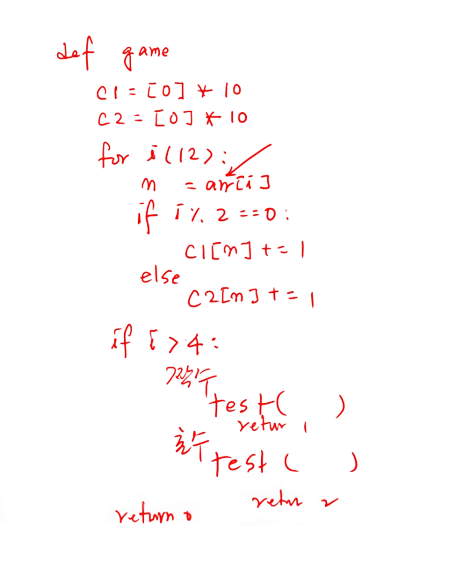 def game
c1 = [0] * 10
c2 = [0] * 10
for i(12):
n = arr[i]
if i % 2 == 0:
c1[n] += 1
else
c2[n] += 1
if i > 4:
짝수
test( )
retur 1
홀수
test ( )
retur 2
return 0